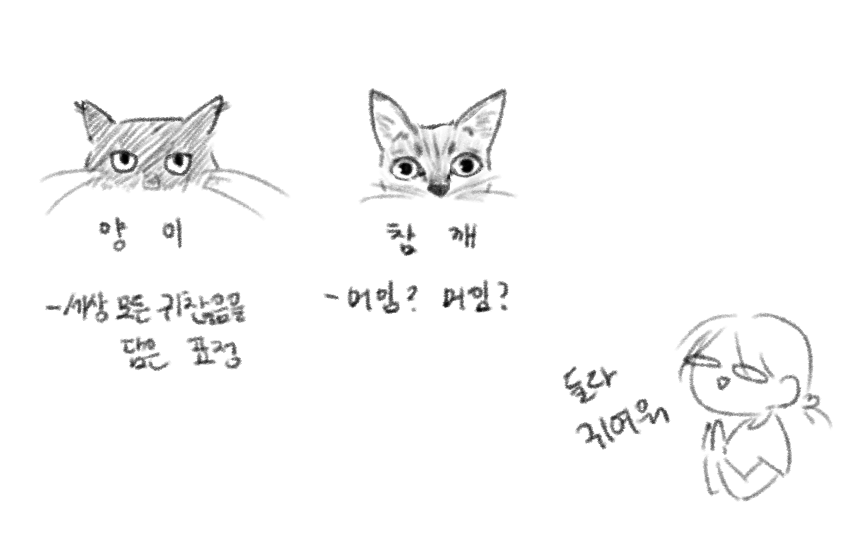 양이
참깨
-세상 모든 귀찮음을
담은 표정
-머임? 머임?
둘다
귀여워